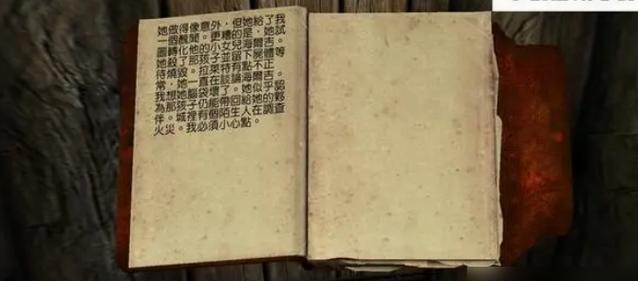 她做得像意外,但她給了我
一個醜聞。更糟的是,她試
圖轉化他的小女兒海爾吉。
她殺了那孩子並留下屍體等
待燒毀。拉萊特有點不正
常,她一直在談論海爾吉。
我想她腦袋壞了。她似乎認
為那孩子仍能帶回給她的夥
伴。城裡有個陌生人在調查
火災。我必須小心點。